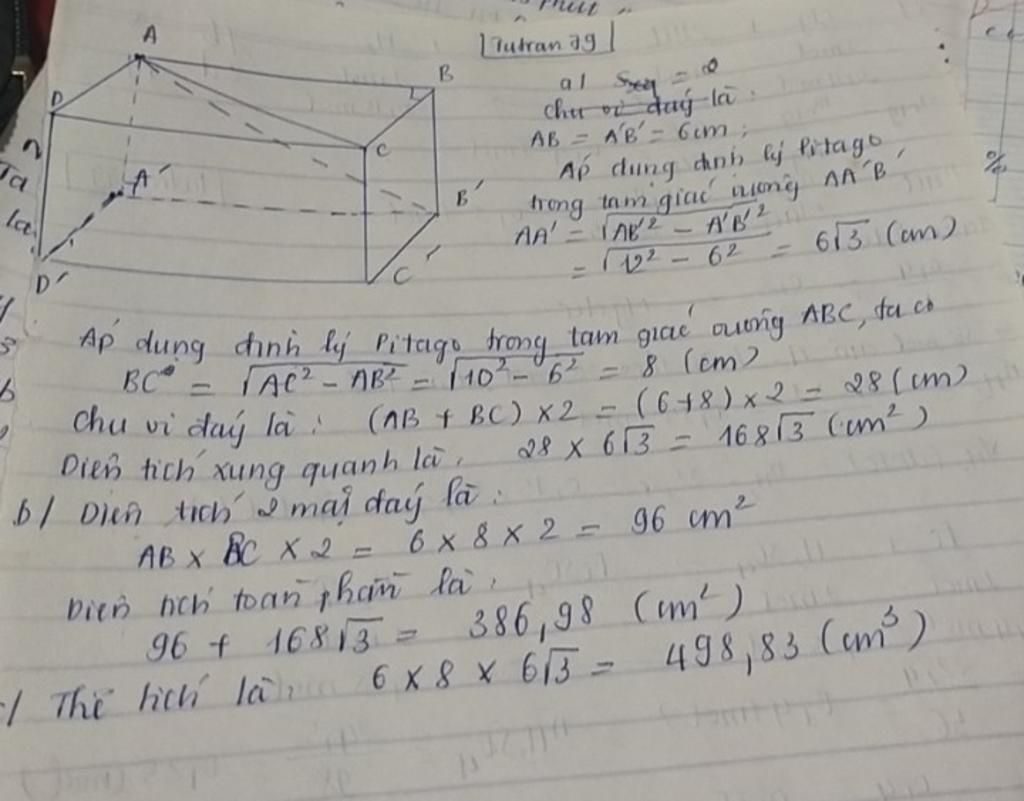 A
B
D
C
A'
B'
D'
C'
a/ Sxq = ?
chu vi đáy là:
AB = A'B' = 6cm;
Áp dụng định lý Pitago
trong tam giác vuông AA'B'
AA' = √AB'² - A'B'²
= √12² - 6² = 6√3 (cm)
Áp dụng định lý Pitago trong tam giác vuông ABC, ta có
BC = √AC² - AB² = √10² - 6² = 8 (cm)
Chu vi đáy là: (AB + BC) × 2 = (6+8) × 2 = 28 (cm)
Diện tích xung quanh là: 28 × 6√3 = 168√3 (cm²)
b/ Diện tích 2 mặt đáy là:
AB × BC × 2 = 6 × 8 × 2 = 96 cm²
Diện tích toàn phần là:
96 + 168√3 = 386,98 (cm²)
/ Thể tích là: 6 × 8 × 6√3 = 498,83 (cm³)